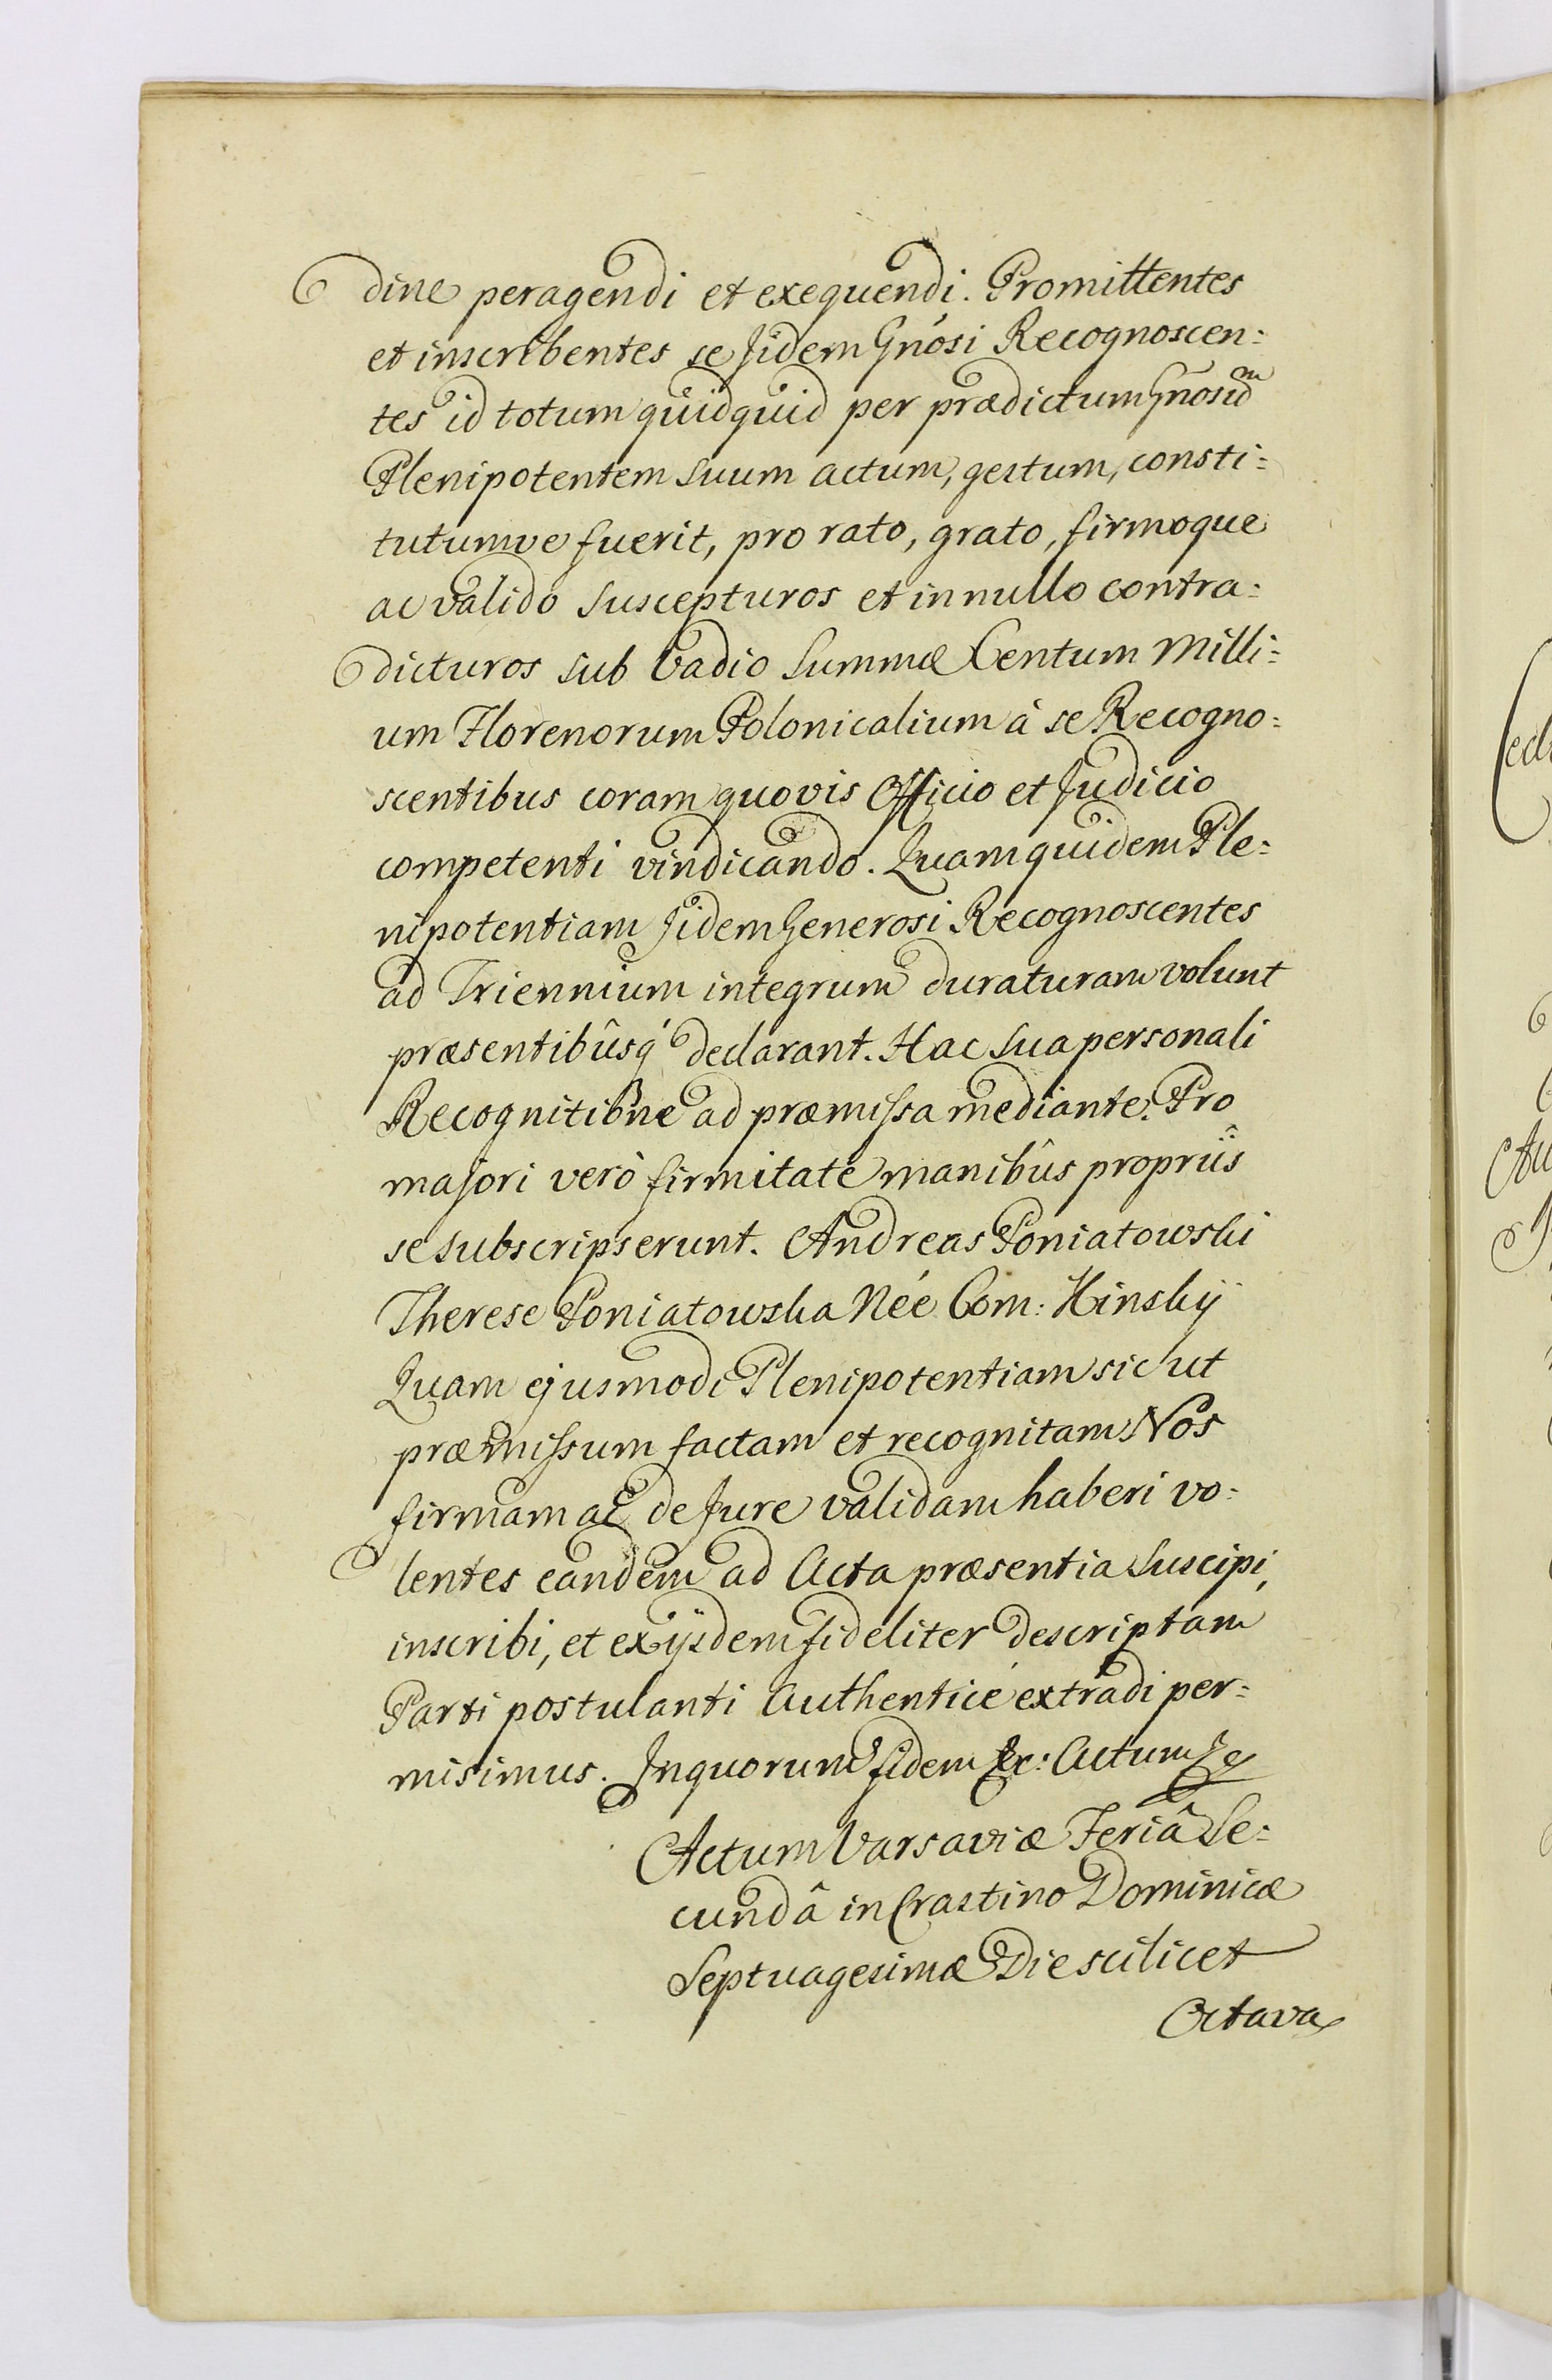 dine peragendi et exequendi. Promittentes
et inscribentes se Jidem Gnosi Recognoscen:
tes id totum quidquid per prædictum Gnosum
Plenipotentem suum actum, gestum, consti:
tutumve fuerit, pro rato, grato, firmoque
ac valido suscepturos et in nullo contra:
dicturos sub Vadio Summæ Centum Milli:
um Florenorum Polonicalium à se Recogno:
scentibus coram quovis Officio et Judicio
competenti vindicando. Quam quidem Ple:
nipotentiam Jidem Generosi Recognoscentes
ad Triennium integrum duraturam volunt
præsentibûsq́ declarant. Hac sua personali
Recognitione ad præmissa mediante. Pro
majori verò firmitate manibûs propriîs
se subscripserunt. Andreas Poniatowski
Therese Poniatowska Née Com: Kinskÿ
Quam ejusmodi Plenipotentiam sic ut
præmissum factam et recognitam Nos
firmam ac de Jure validam haberi vo:
lentes eandem ad Acta præsentia suscipi,
inscribi, et ex ijsdem fideliter descriptam
Parti postulanti Authenticé extradi per:
misimus. In quorum fidem &c: Actum
Actum Varsaviæ Feriâ Se:
cundâ in Crastino Dominicæ
Septuagesimæ Die scilicet
Octava